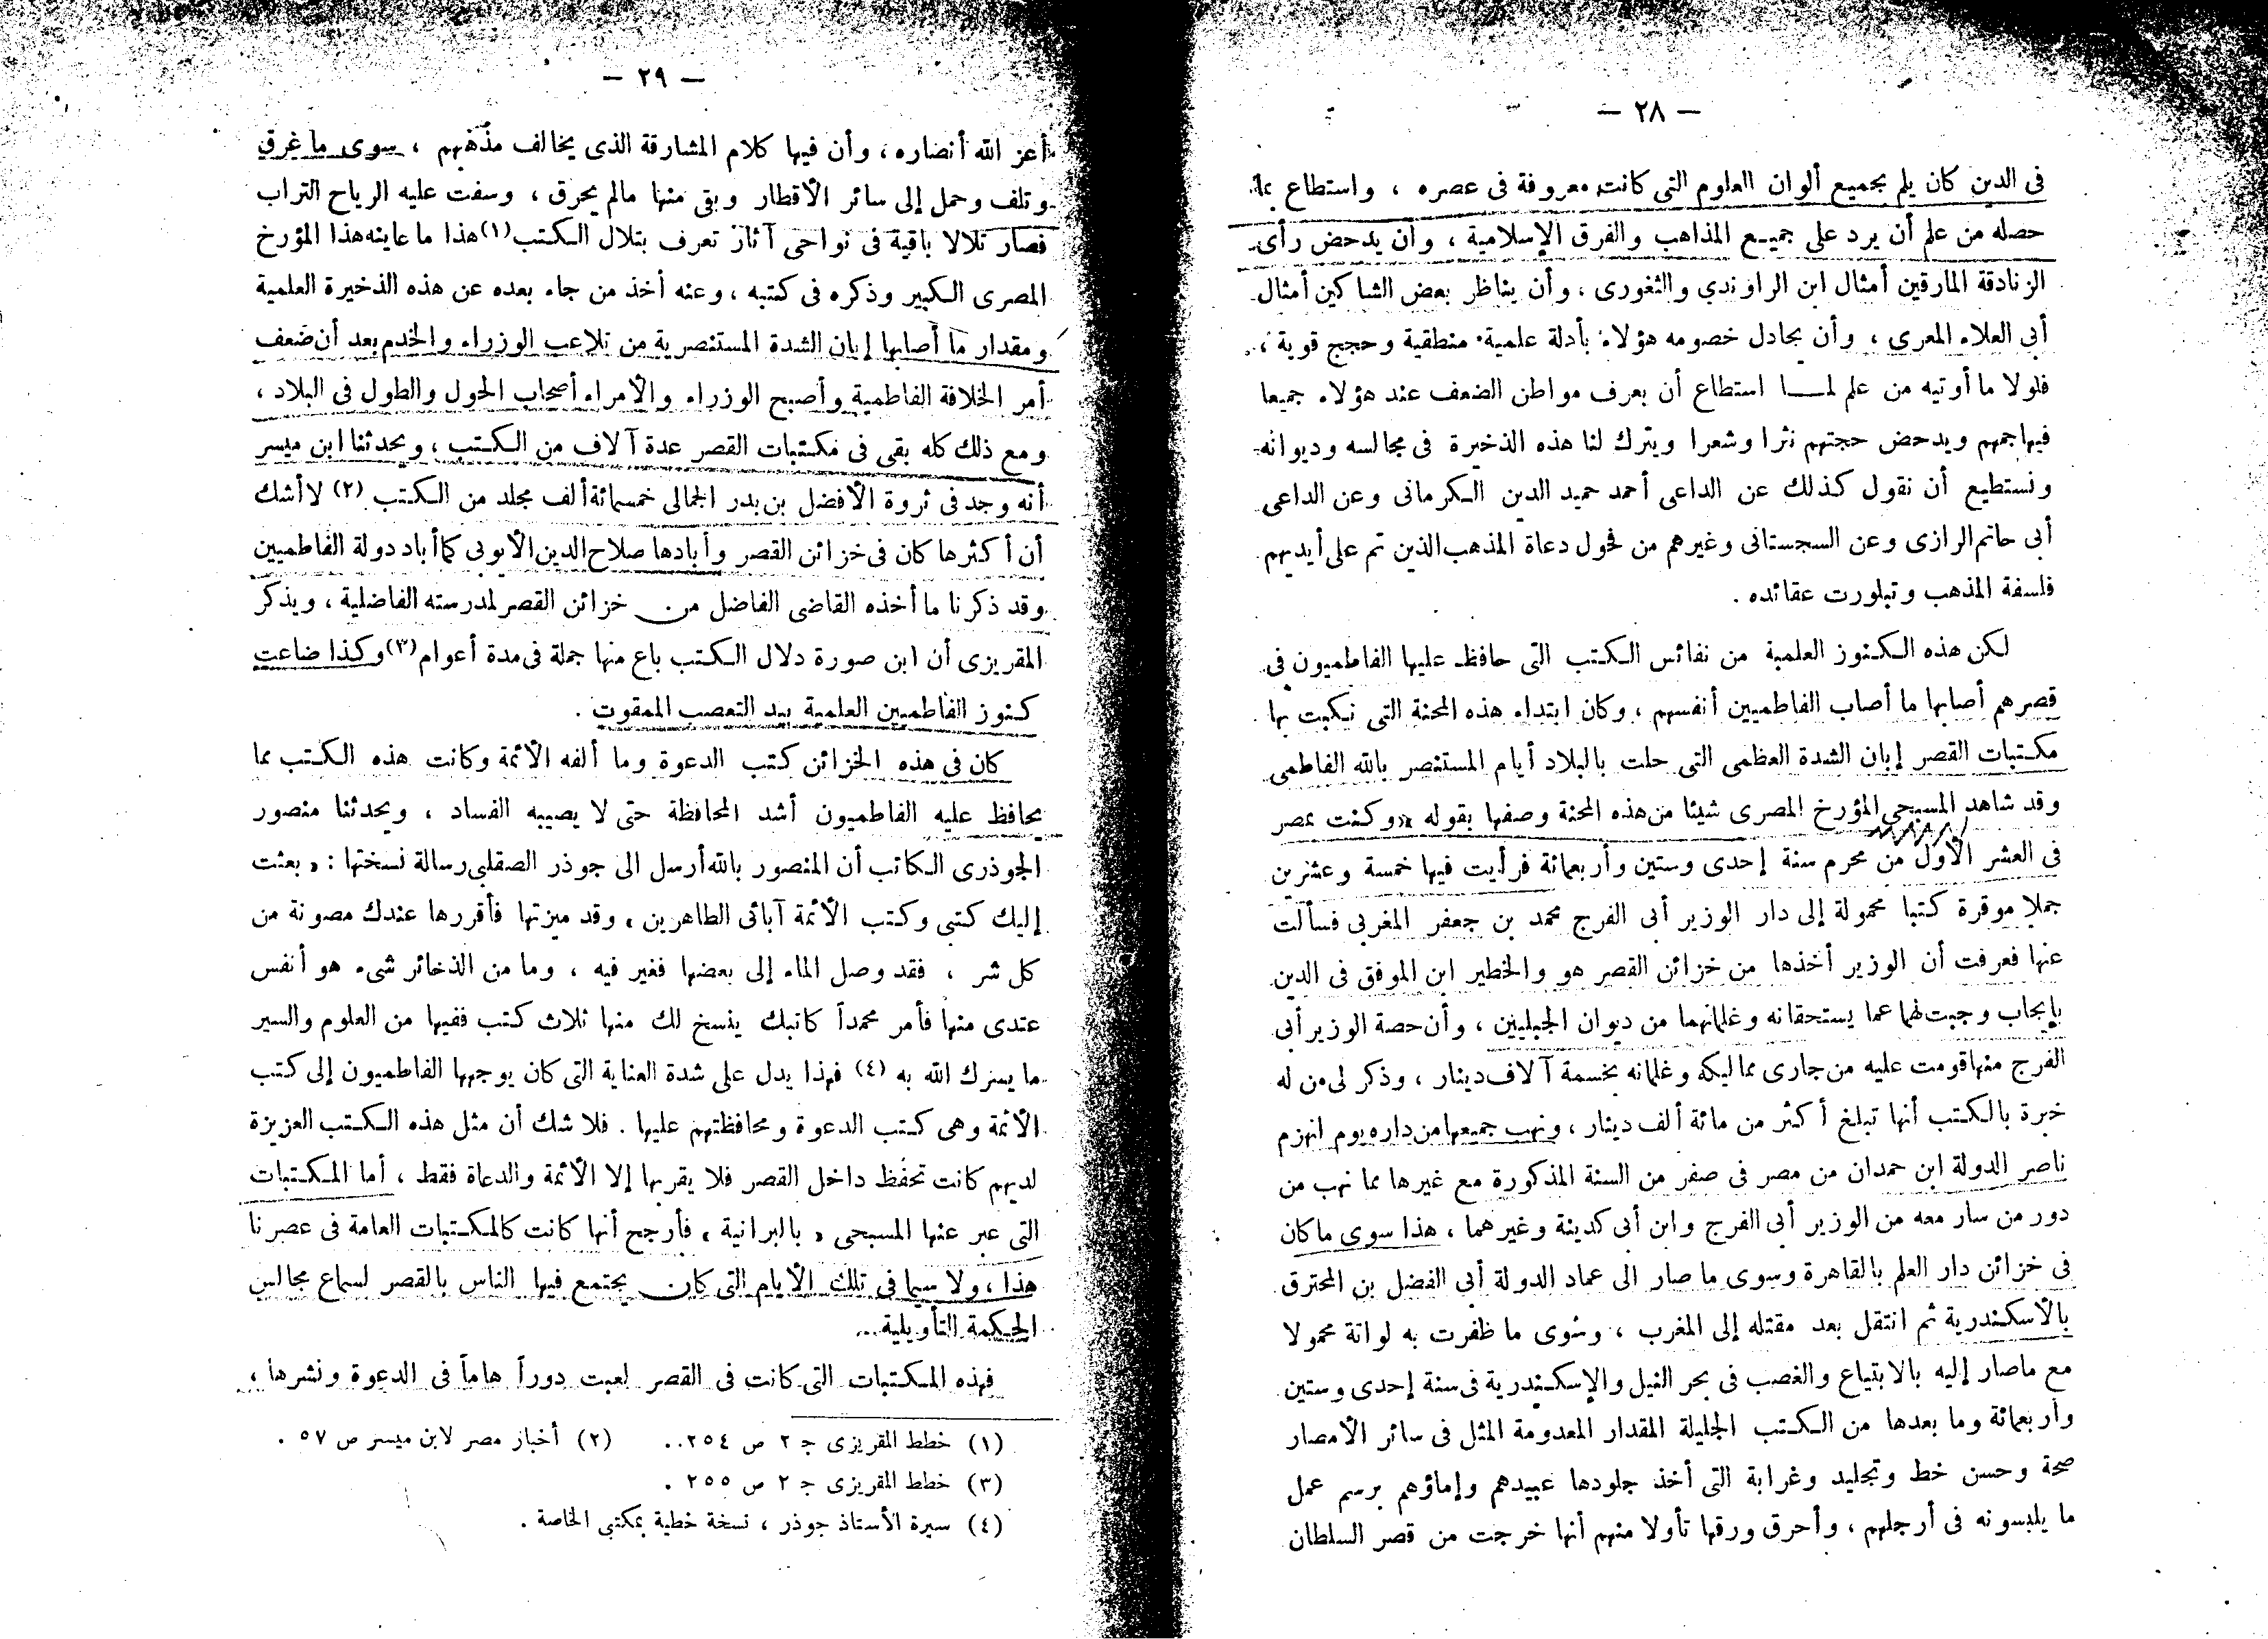 — ٢٨ —
فى الدين كان يلم بجميع ألوان العلوم التى كانت معروفة فى عصره ، واستطاع بما
حصله من علم أن يرد على جميع المذاهب والفرق الإسلامية ، وأن يدحض رأى
الزنادقة المارقين أمثال ابن الراوندي والثغورى ، وأن يناظر بعض الشاكين أمثال
أبى العلاء المعرى ، وأن يجادل خصومه هؤلاء بأدلة علمية منطقية وحجج قوية ،
فلولا ما أوتيه من علم لما استطاع أن يعرف مواطن الضعف عند هؤلاء جميعا
فيهاجمهم ويدحض حجتهم نثرا وشعرا ويترك لنا هذه الذخيرة فى مجالسه وديوانه
ونستطيع أن نقول كذلك عن الداعى أحمد حميد الدين الكرمانى وعن الداعى
أبى حاتم الرازى وعن السجستانى وغيرهم من فحول دعاة المذهب الذين تم على أيديهم
فلسفة المذهب وتبلورت عقائده .
لكن هذه الكنوز العلمية من نفائس الكتب التى حافظ عليها الفاطميون فى
قصرهم أصابها ما أصاب الفاطميين أنفسهم ، وكان ابتداء هذه المحنة التى نكبت بها
مكتبات القصر إبان الشدة العظمى التى حلت بالبلاد أيام المستنصر بالله الفاطمى
وقد شاهد المسبحى المؤرخ المصرى شيئا من هذه المحنة وصفها بقوله «وكنت بمصر
فى العشر الأول من محرم سنة إحدى وستين وأربعمائة فرأيت فيها خمسة وعشرين
جملا موقرة كتبا محمولة إلى دار الوزير أبى الفرج محمد بن جعفر المغربى فسألت
عنها فعرفت أن الوزير أخذها من خزائن القصر هو والخطير ابن الموفق فى الدين
بإيجاب وجبت لهما عما يستحقانه وغلمانهما من ديوان الجبليين ، وأن حصة الوزير أبى
الفرج منها قومت عليه من جارى مماليكه وغلمانه بخمسة آلاف دينار ، وذكر لى من له
خبرة بالكتب أنها تبلغ أكثر من مائة ألف دينار ، ونهب جميعها من داره يوم انهزم
ناصر الدولة ابن حمدان من مصر فى صفر من السنة المذكورة مع غيرها مما نهب من
دور من سار معه من الوزير أبى الفرج وابن أبى كدينة وغيرهما ، هذا سوى ما كان
فى خزائن دار العلم بالقاهرة وسوى ما صار الى عماد الدولة أبى الفضل بن المحترق
بالأسكندرية ثم انتقل بعد مقتله إلى المغرب ، وسوى ما ظفرت به لواتة محمولا
مع ماصار إليه بالابتياع والغصب فى بحر النيل والإسكندرية فى سنة إحدى وستين
وأربعمائة وما بعدها من الكتب الجليلة المقدار المعدومة المثل فى سائر الأمصار
صحة وحسن خط وتجليد وغرابة التى أخذ جلودها عبيدهم وإماؤهم برسم عمل
ما يلبسونه فى أرجلهم ، وأحرق ورقها تأولا منهم أنها خرجت من قصر السلطان
— ٢٩ —
أعز الله أنصاره ، وأن فيها كلام المشارقة الذى يخالف مذهبهم ، سوى ما غرق
وتلف وحمل إلى سائر الأقطار وبقى منها مالم يحرق ، وسفت عليه الرياح التراب
فصار تلالا باقية فى نواحى آثار تعرف بتلال الكتب(١) هذا ما عاينه هذا المؤرخ
المصرى الكبير وذكره فى كتبه ، وعنه أخذ من جاء بعده عن هذه الذخيرة العلمية
ومقدار ما أصابها إبان الشدة المستنصرية من تلاعب الوزراء والخدم بعد أن ضعف
أمر الخلافة الفاطمية وأصبح الوزراء والأمراء أصحاب الحول والطول فى البلاد ،
ومع ذلك كله بقى فى مكتبات القصر عدة آلاف من الكتب ، ويحدثنا ابن ميسر
أنه وجد فى ثروة الأفضل بن بدر الجمالى خمسمائة ألف مجلد من الكتب (٢) لا أشك
أن أكثرها كان فى خزائن القصر وأبادها صلاح الدين الأيوبى كما أباد دولة الفاطميين
وقد ذكرنا ما أخذه القاضى الفاضل من خزائن القصر لمدرسته الفاضلية ، ويذكر
المقريزى أن ابن صورة دلال الكتب باع منها جملة فى مدة أعوام (٣) وكذا ضاعت
كنوز الفاطميين العلمية بيد التعصب الممقوت .
كان فى هذه الخزائن كتب الدعوة وما ألفه الأئمة وكانت هذه الكتب مما
يحافظ عليه الفاطميون أشد المحافظة حتى لا يصيبه الفساد ، ويحدثنا منصور
الجوذرى الكاتب أن المنصور بالله أرسل الى جوذر الصقلبى رسالة نسختها : « بعثت
إليك كتبى وكتب الأئمة آبائى الطاهرين ، وقد ميزتها فأقررها عندك مصونة من
كل شر ، فقد وصل الماء إلى بعضها فغير فيه ، وما من الذخائر شىء هو أنفس
عندى منها فأمر محمداً كاتبك ينسخ لك منها ثلاث كتب ففيها من العلوم والسير
ما يسرك الله به (٤) فهذا يدل على شدة العناية التى كان يوجهها الفاطميون إلى كتب
الأئمة وهى كتب الدعوة ومحافظتهم عليها . فلا شك أن مثل هذه الكتب العزيزة
لديهم كانت تحفظ داخل القصر فلا يقربها إلا الأئمة والدعاة فقط ، أما المكتبات
التى عبر عنها المسبحى « بالبرانية » فأرجح أنها كانت كالمكتبات العامة فى عصرنا
هذا ، ولا سيما فى تلك الأيام التى كان يجتمع فيها الناس بالقصر لسماع مجالس
الحكمة التأويلية .
فهذه المكتبات التى كانت فى القصر لعبت دوراً هاماً فى الدعوة ونشرها ،
(١) خطط المقريزى ج ٢ ص ٢٥٤ . (٢) أخبار مصر لابن ميسر ص ٥٧ .
(٣) خطط المقريزى ج ٢ ص ٢٥٥ .
(٤) سيرة الأستاذ جوذر ، نسخة خطية بمكتبى الخاصة .